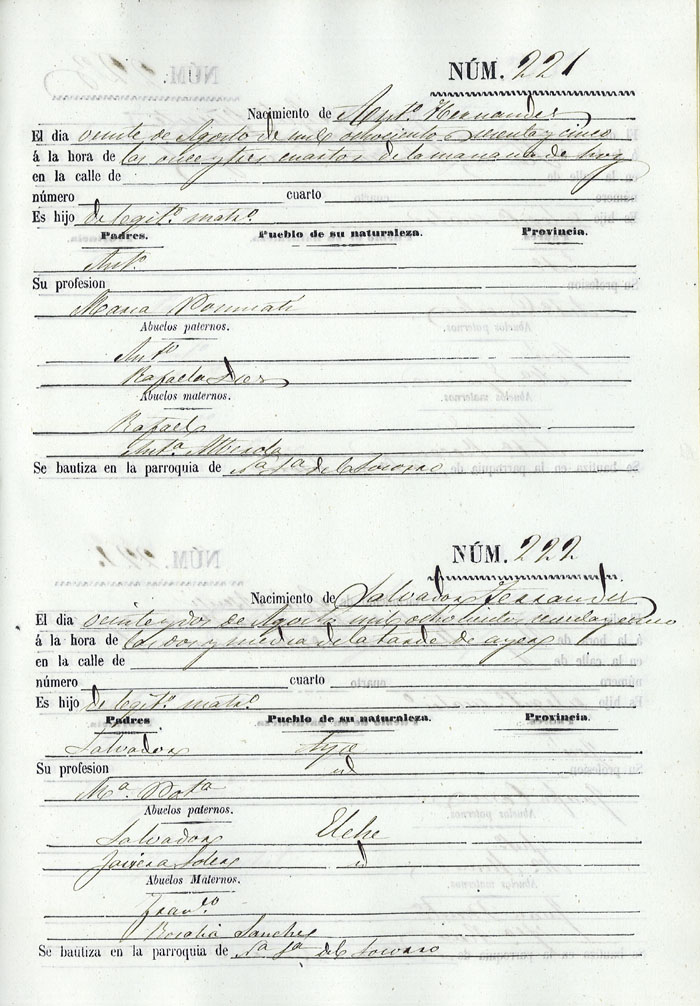 NÚM. 221
Nacimiento de Ant.º Hernandez
El dia veinte de Agosto de mil ochociento sesenta y cinco
á la hora de las once y tres cuartos de la mañana de hoy
en la calle de
número cuarto
Es hijo de legit.º matr.º
Padres. Pueblo de su naturaleza. Provincia.
Ant.º
Su profesion
Maria
Abuelos paternos.
Ant.º
Rafaela
Abuelos maternos.
Rafael
Ant.ª
Se bautiza en la parroquia de N.ª S.ª del Socorro
NÚM. 222
Nacimiento de Salvador Fernandez
El dia veinte y dos de Agost. mil ochocientos
á la hora de las dos y media de la tarde de ayer
en la calle de
número cuarto
Es hijo de legit.º matr.º
Padres Pueblo de su naturaleza. Provincia.
Salvador
Su profesion id
M.ª
Abuelos paternos.
Salvador Elche
Javiera Soler id
Abuelos Maternos.
Fran.co
Rosalia Sanchez
Se bautiza en la parroquia de N.ª S.ª del Socorro